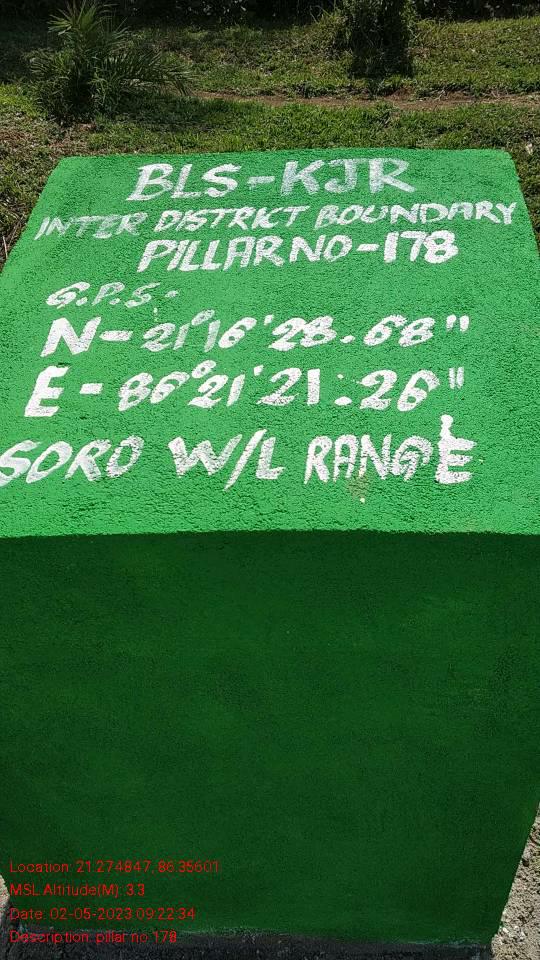 BLS-KJR
INTER DISTRICT BOUNDARY
PILLAR NO-178
G.P.S.-
N-21°16'28.68"
E-86°21'21:26"
SORO W/L RANGE
Location: 21.274847, 86.35601
MSL Altitude(M): 3.3
Date: 02-05-2023 09:22:34
Description: pillar no 178